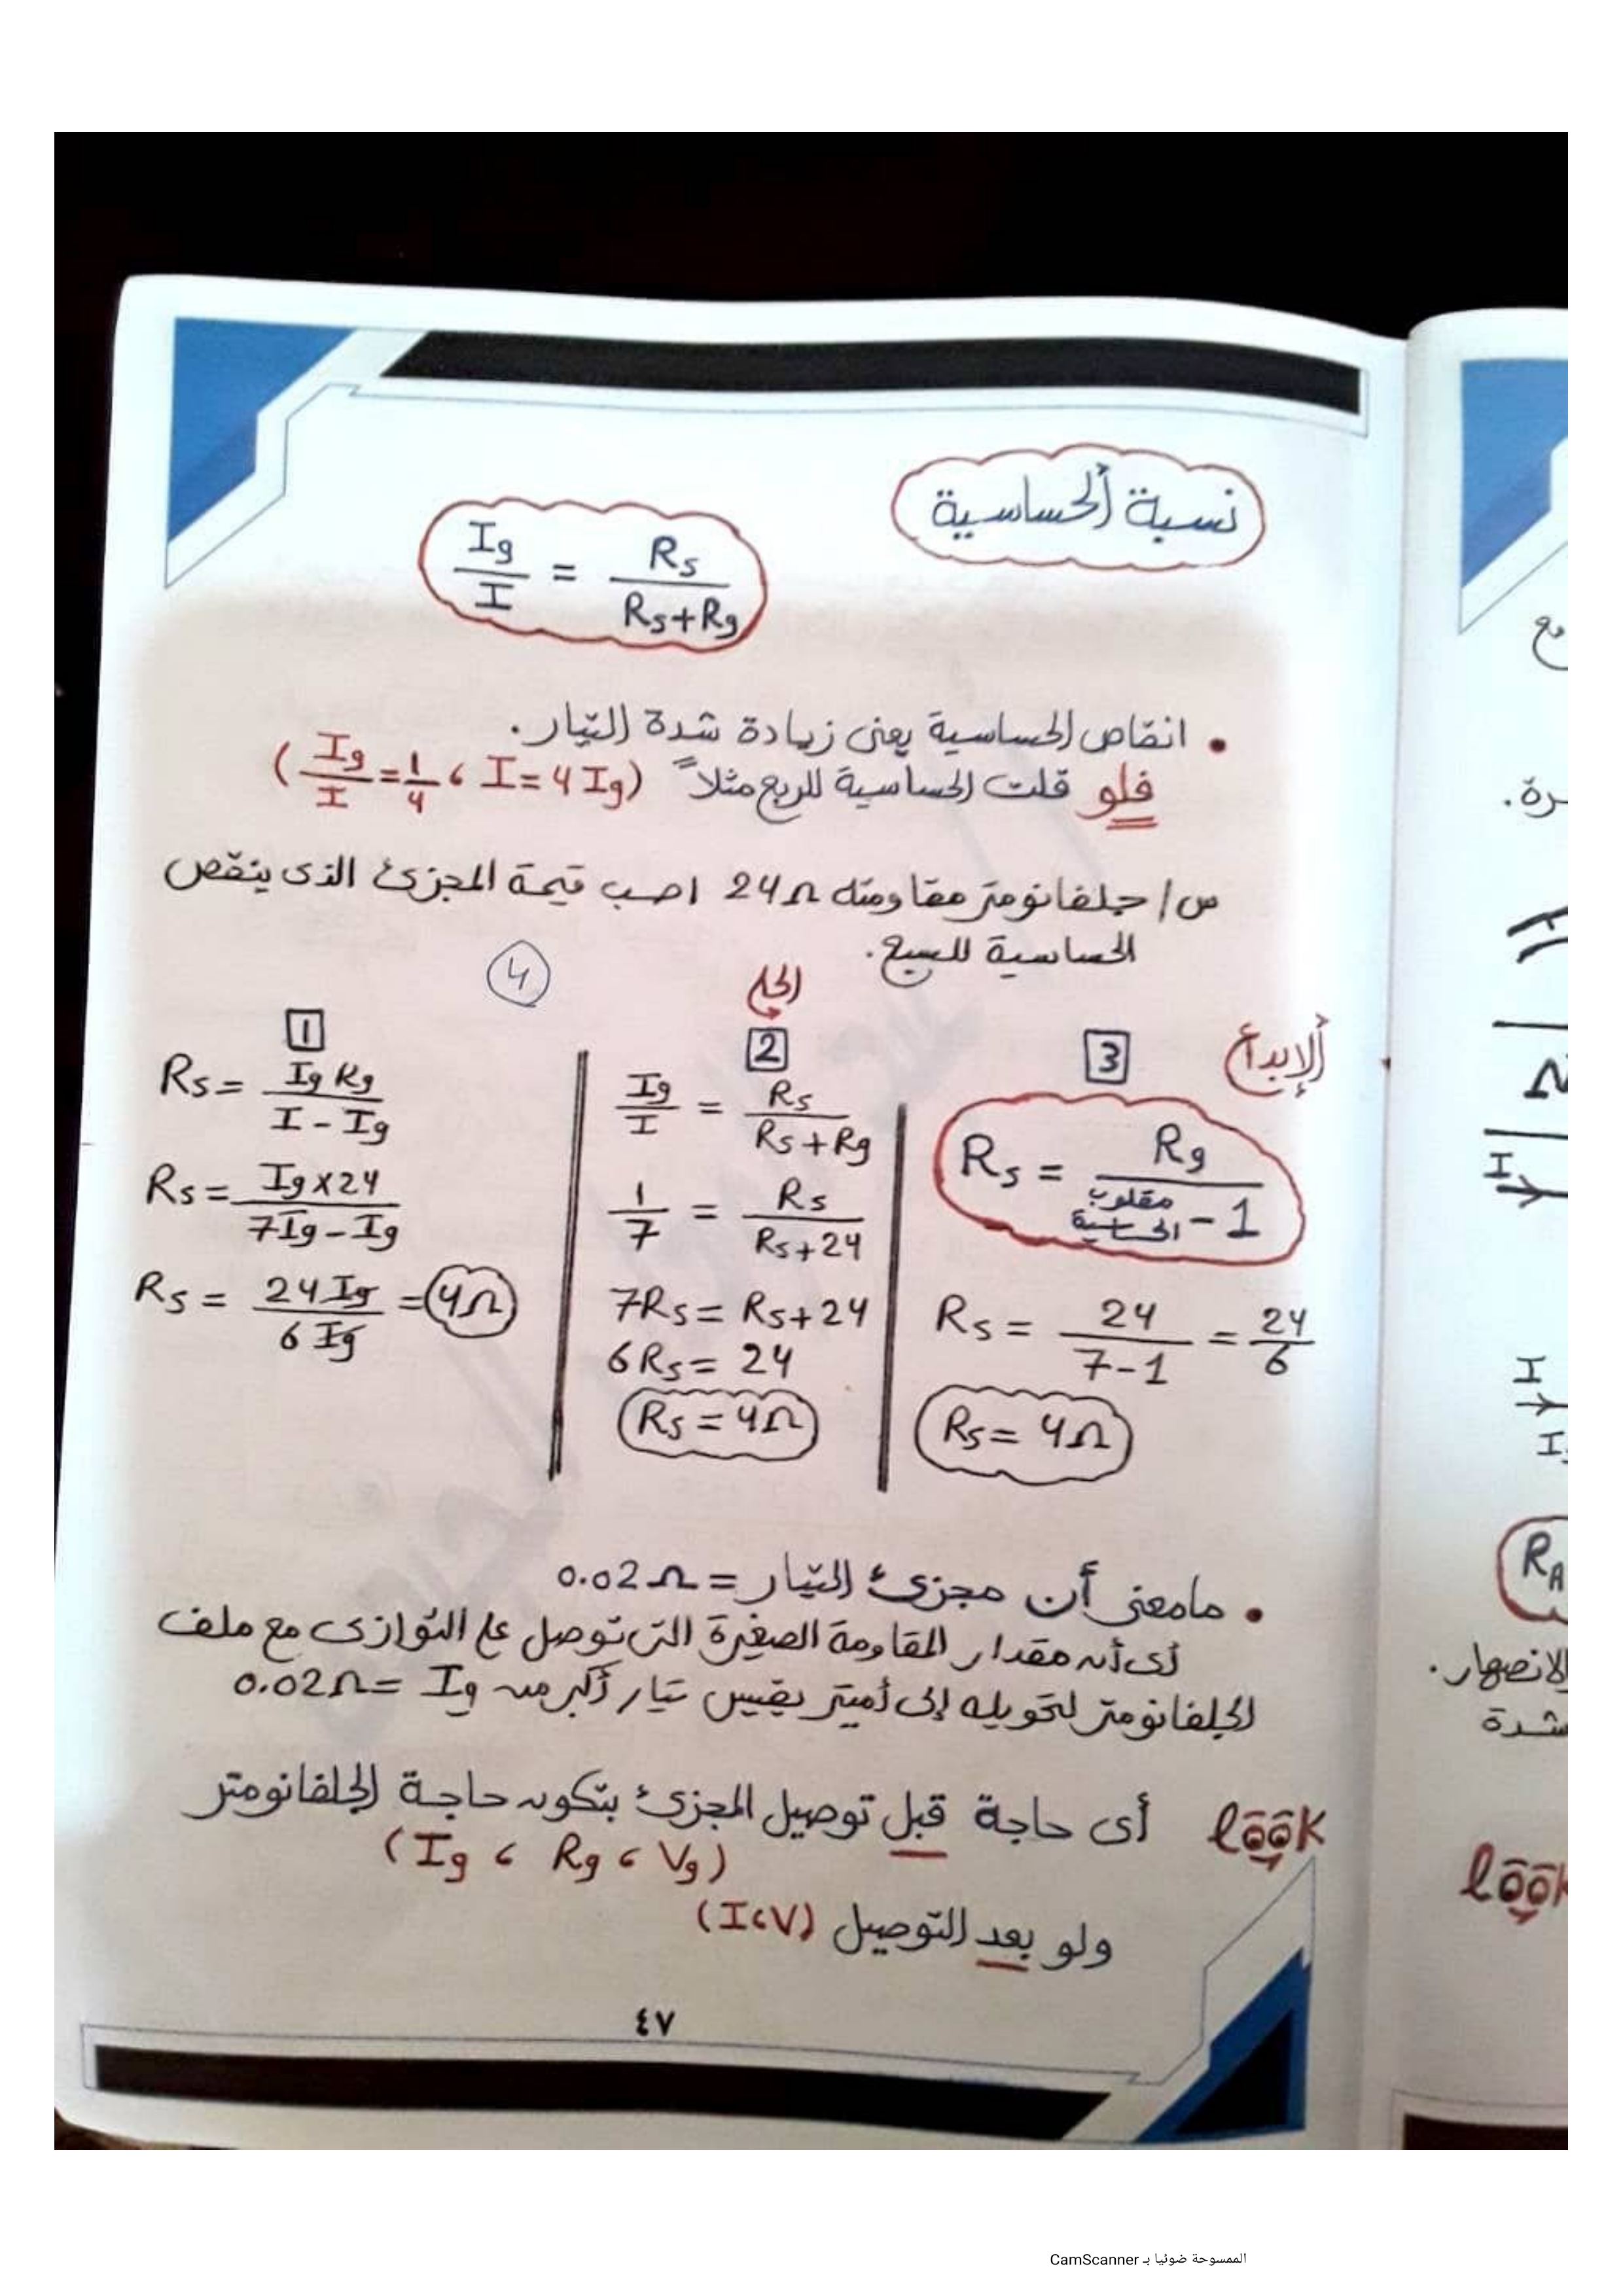 نسبة الحساسية
Ig/I = Rs/(Rs+Rg)
• انقاص الحساسية يعنى زيادة شدة التيار.
فلو قلت الحساسية للربع مثلاً (Ig/I = 1/4 ، I = 4Ig)
س/ جلفانومتر مقاومته 24Ω احسب قيمة المجزئ الذى ينقص
الحساسية للسبع.
4
الحل
الإبداع
1
Rs = Ig Rg/(I - Ig)
Rs = Ig×24/(7Ig - Ig)
Rs = 24Ig/6Ig = 4Ω
2
Ig/I = Rs/(Rs+Rg)
1/7 = Rs/(Rs+24)
7Rs = Rs+24
6Rs = 24
Rs = 4Ω
3
Rs = Rg/(مقلوب الحساسية - 1)
Rs = 24/(7-1) = 24/6
Rs = 4Ω
• مامعنى أن مجزئ التيار = 0.02Ω
أى أن مقدار المقاومة الصغيرة التى توصل على التوازى مع ملف
الجلفانومتر لتحويله إلى أميتر يقيس تيار أكبر من Ig = 0.02Ω
look أى حاجة قبل توصيل المجزئ بتكون حاجة الجلفانومتر
(Ig ، Rg ، Vg)
ولو بعد التوصيل (I،V)
٤٧
مع
رة.
I
I
I
RA
الانصهار.
شدة
look
الممسوحة ضوئيا بـ CamScanner